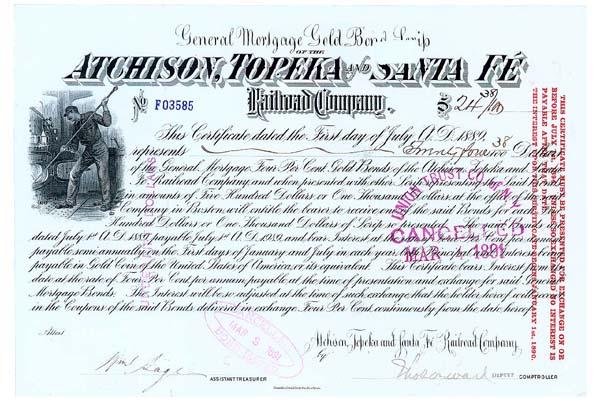 General Mortgage Gold Bond Scrip
OF THE
ATCHISON, TOPEKA AND SANTA FÉ
No F03585 Railroad Company. $24 38/100
This Certificate dated the First day of July A.D. 1889,
represents Twenty four 38 Dollars
of the General Mortgage Four Per Cent Gold Bonds of the Atchison Topeka and Santa
Fe Railroad Company, and when presented with other Scrip
in amounts of Five Hundred Dollars or One Thousand Dollars at the office of
Company in Boston, will entitle the bearer to receive one of the said Bonds for each
Hundred Dollars or One Thousand Dollars of Scrip
dated July 1st A.D. 1889, payable July 1st A.D. 1989, and bear Interest at
payable semi annually on the first days of January and July in each year,
payable in Gold Coin of the United States of America, or its equivalent. This Certificate bears Interest
date at the rate of Four Per Cent per annum payable at the time of presentation and exchange for said
Mortgage Bonds. The Interest will be so adjusted at the time of such exchange that the holder hereof will
in the Coupons of the said Bonds delivered in exchange Four Per Cent continuously from the date hereof
Attest
Atchison, Topeka and Santa Fe Railroad Company,
by
ASSISTANT TREASURER
DEPUTY COMPTROLLER
THIS CERTIFICATE MUST BE PRESENTED FOR EXCHANGE ON OR
BEFORE JULY
PAYABLE AFTER THAT DATE.
JANUARY 1st, 1890.
UNION TRUST CO. N.Y.
CANCELLED
MAR 1891
MAR 3 1891